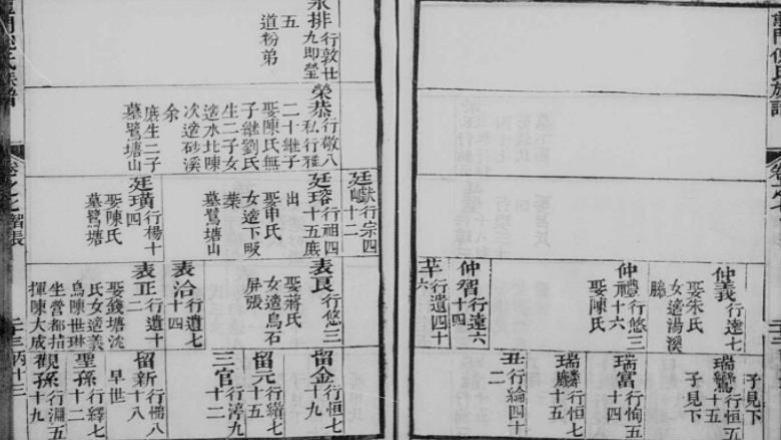 卷之七
仲義行遠七
娶朱氏
女適湯溪
行悠三
十六
娶陳氏
仲智行遠六
十四
行遺四十
六
子見下
十五
子見下
瑞富行恂五
十四
瑞麟行恒七
十五
丑行綸四十
二
排行敦廿
九即瑩
五
道粉弟
榮恭行敬八
私行雅
二十繼子
娶陳氏無
子繼劉氏
生二子女
適水北陳
次適砂溪
余
底生二子
墓鷺塘山
行宗四
十二
廷瑢行祖四
十五底
出
娶申氏
女適下畈
葉
墓鷺塘山
廷璜行楊十
四
娶陳氏
墓鷺塘
表良行悠三
娶蔣氏
女適烏石
屏張
表洽行遺七
十四
表正行遺十
二
娶錢塘沈
氏女適義
烏陳世琳
坐營都指
揮陳大成
留金行恒七
十九
留元行續七
十五
三官行淳九
十二
留新行
十八
早世
聖孫行繹七
十二
觀孫行淵五
十九